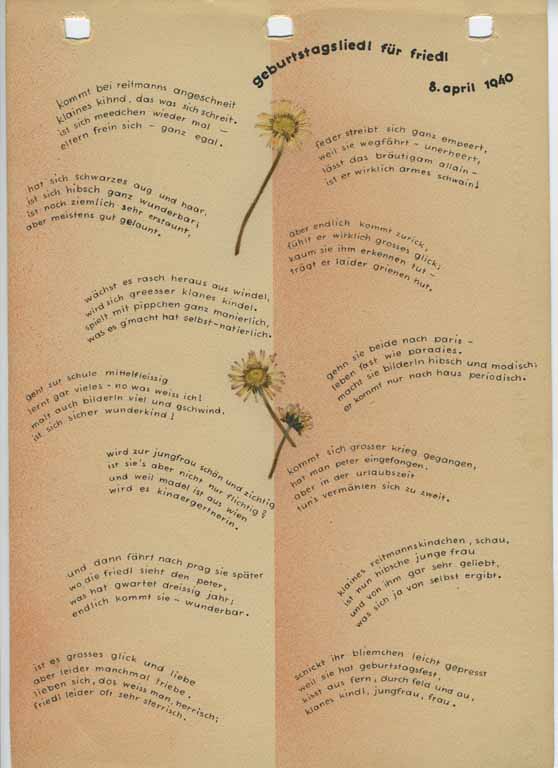 geburtstagsliedl für friedl
8. april 1940
kommt bei reitmanns angeschneit
klaines kihnd, das was sich schreit.
ist sich meedchen wieder mal –
eltern frein sich – ganz egal.
hat sich schwarzes aug und haar,
ist sich hibsch ganz wunderbar;
ist noch ziemlich sehr erstaunt,
aber meistens gut gelaunt.
wächst es rasch heraus aus windel,
wird sich greesser klanes kindel.
spielt mit pippchen ganz manierlich,
was es g'macht hat selbst-natierlich.
geht zur schule mittelfleissig
lernt gar vieles - no was weiss ich!
malt auch bilderln viel und gschwind,
ist sich sicher wunderkind!
wird zur jungfrau schön und zichtig
ist sie's aber nicht nur flichtig?
und weil madel ist aus wien
wird es kindergertnerin.
und dann fährt nach prag sie später
wo die friedl sieht den peter,
was hat gwartet dreissig jahr;
endlich kommt sie – wunderbar.
ist es grosses glick und liebe
aber leider manchmal triebe.
lieben sich, dos weiss man, herrisch;
friedl leider oft sehr sterrisch.
feger streibt sich ganz empeert,
weil sie wegfährt - unerheert,
lässt das bräutigam allain –
ist er wirklich armes schwain!
aber endlich kommt zurick,
fühlt er wirklich grosses glick;
kaum sie ihm erkennen tut –
trägt er laider grienen hut.
gehn sie beide nach paris –
leben fast wie paradies.
macht sie bilderln hibsch und modisch;
er kommt nur nach haus periodisch.
kommt sich grosser krieg gegangen,
hat man peter eingefangen.
aber in der urlaubszeit
tun's vermählen sich zu zweit.
klaines reitmannskindchen, schau,
ist nun hibsche junge frau
und von ihm gar sehr geliebt,
was sich ja von selbst ergibt.
schickt ihr bliemchen leicht gepresst
weil sie hat geburtstagsfest,
kisst aus fern, durch feld und au,
klanes kindl, jungfrau, frau.